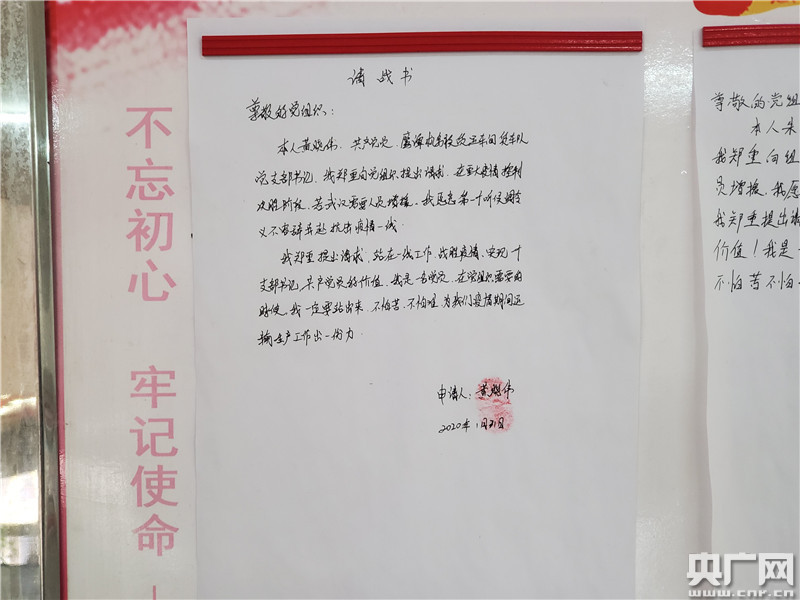 不忘初心
牢记使命
请战书
尊敬的党组织：
本人黄晓伟，共产党员
党支部书记，我郑重向党组织提出请求，在重大疫情控制
决胜阶段，若武汉需要人员增援，我愿意第一个听候调令
义不容辞奔赴抗击疫情一线。
我郑重提出请求，站在一线工作，战胜疫情，实现一个
支部书记、共产党员的价值，我是一名党员，在党组织需要的
时候，我一定要站出来，不怕苦、不怕累，为我们疫情期间运
输生产工作出一份力。
申请人：黄晓伟
2020年1月31日
尊敬的党组
本人朱
我郑重向组
员增援，我愿
我郑重提出请
价值！我是一
不怕苦不怕
央广网
www.cnr.cn